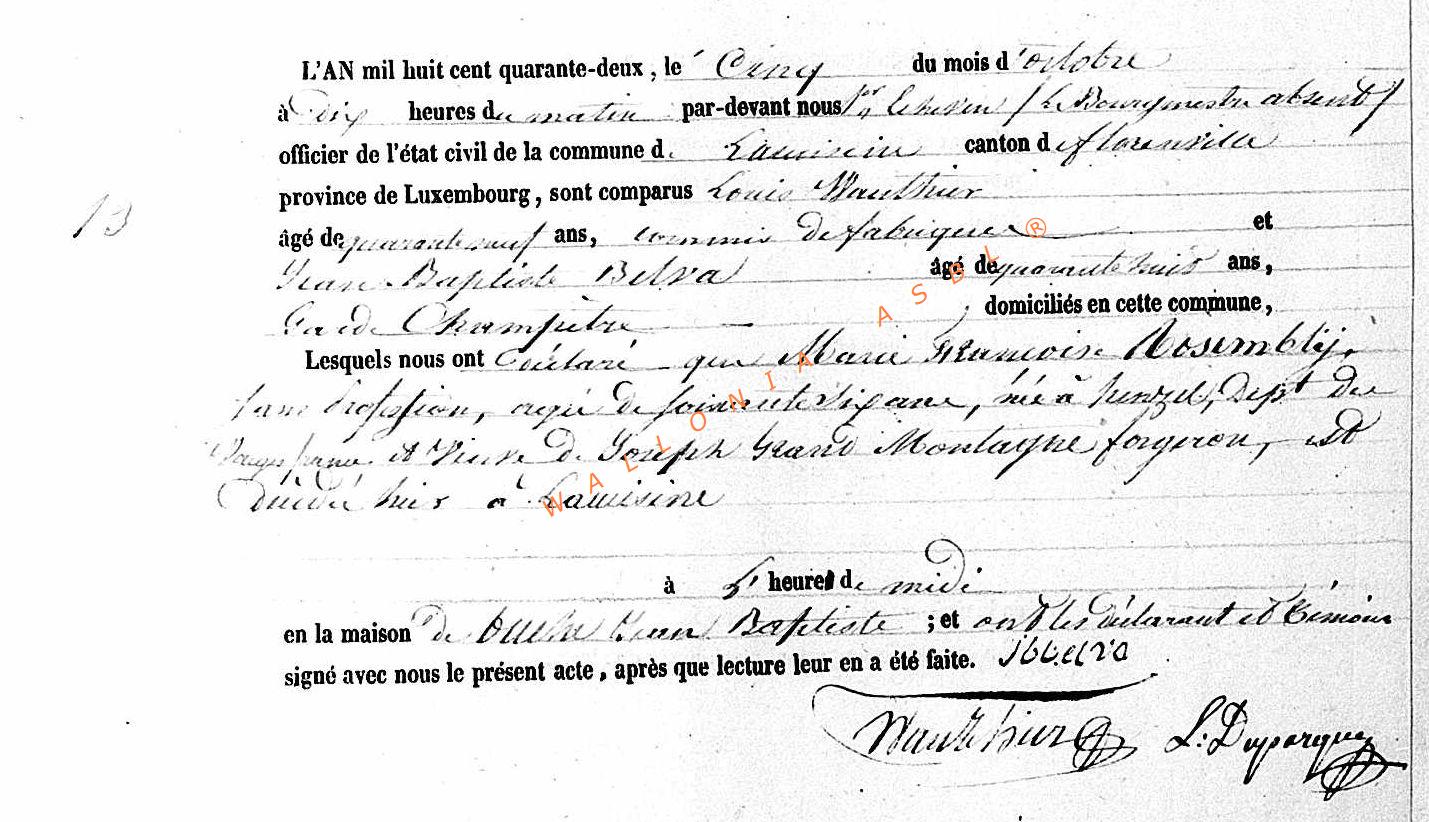 L'AN mil huit cent quarante-deux, le Cinq du mois d'octobre
à Dix heures du matin par-devant nous 1er Echevin / Le Bourgmestre absent /
officier de l'état civil de la commune de Lacuisine canton de florenville
province de Luxembourg, sont comparus Louis Wauthier
13
âgé de quarante neuf ans, commis de fabrique et
Jean Baptiste Belva âgé de quarante huit ans,
Garde Champêtre domiciliés en cette commune,
Lesquels nous ont déclaré que Marie Françoise Rosembly,
sans Profession, agée de soixante dix ans, née à, Dept des
Vosges france et Veuve de Joseph Grand Montagne forgeron, est
décédée hier à Lacuisine
à heure de midi
en la maison de Jean Baptiste ; et ont les déclarant et témoin
signé avec nous le présent acte, après que lecture leur en a été faite. JBBelva
Wauthier L. Duparque
WALLONIA ASBL ®